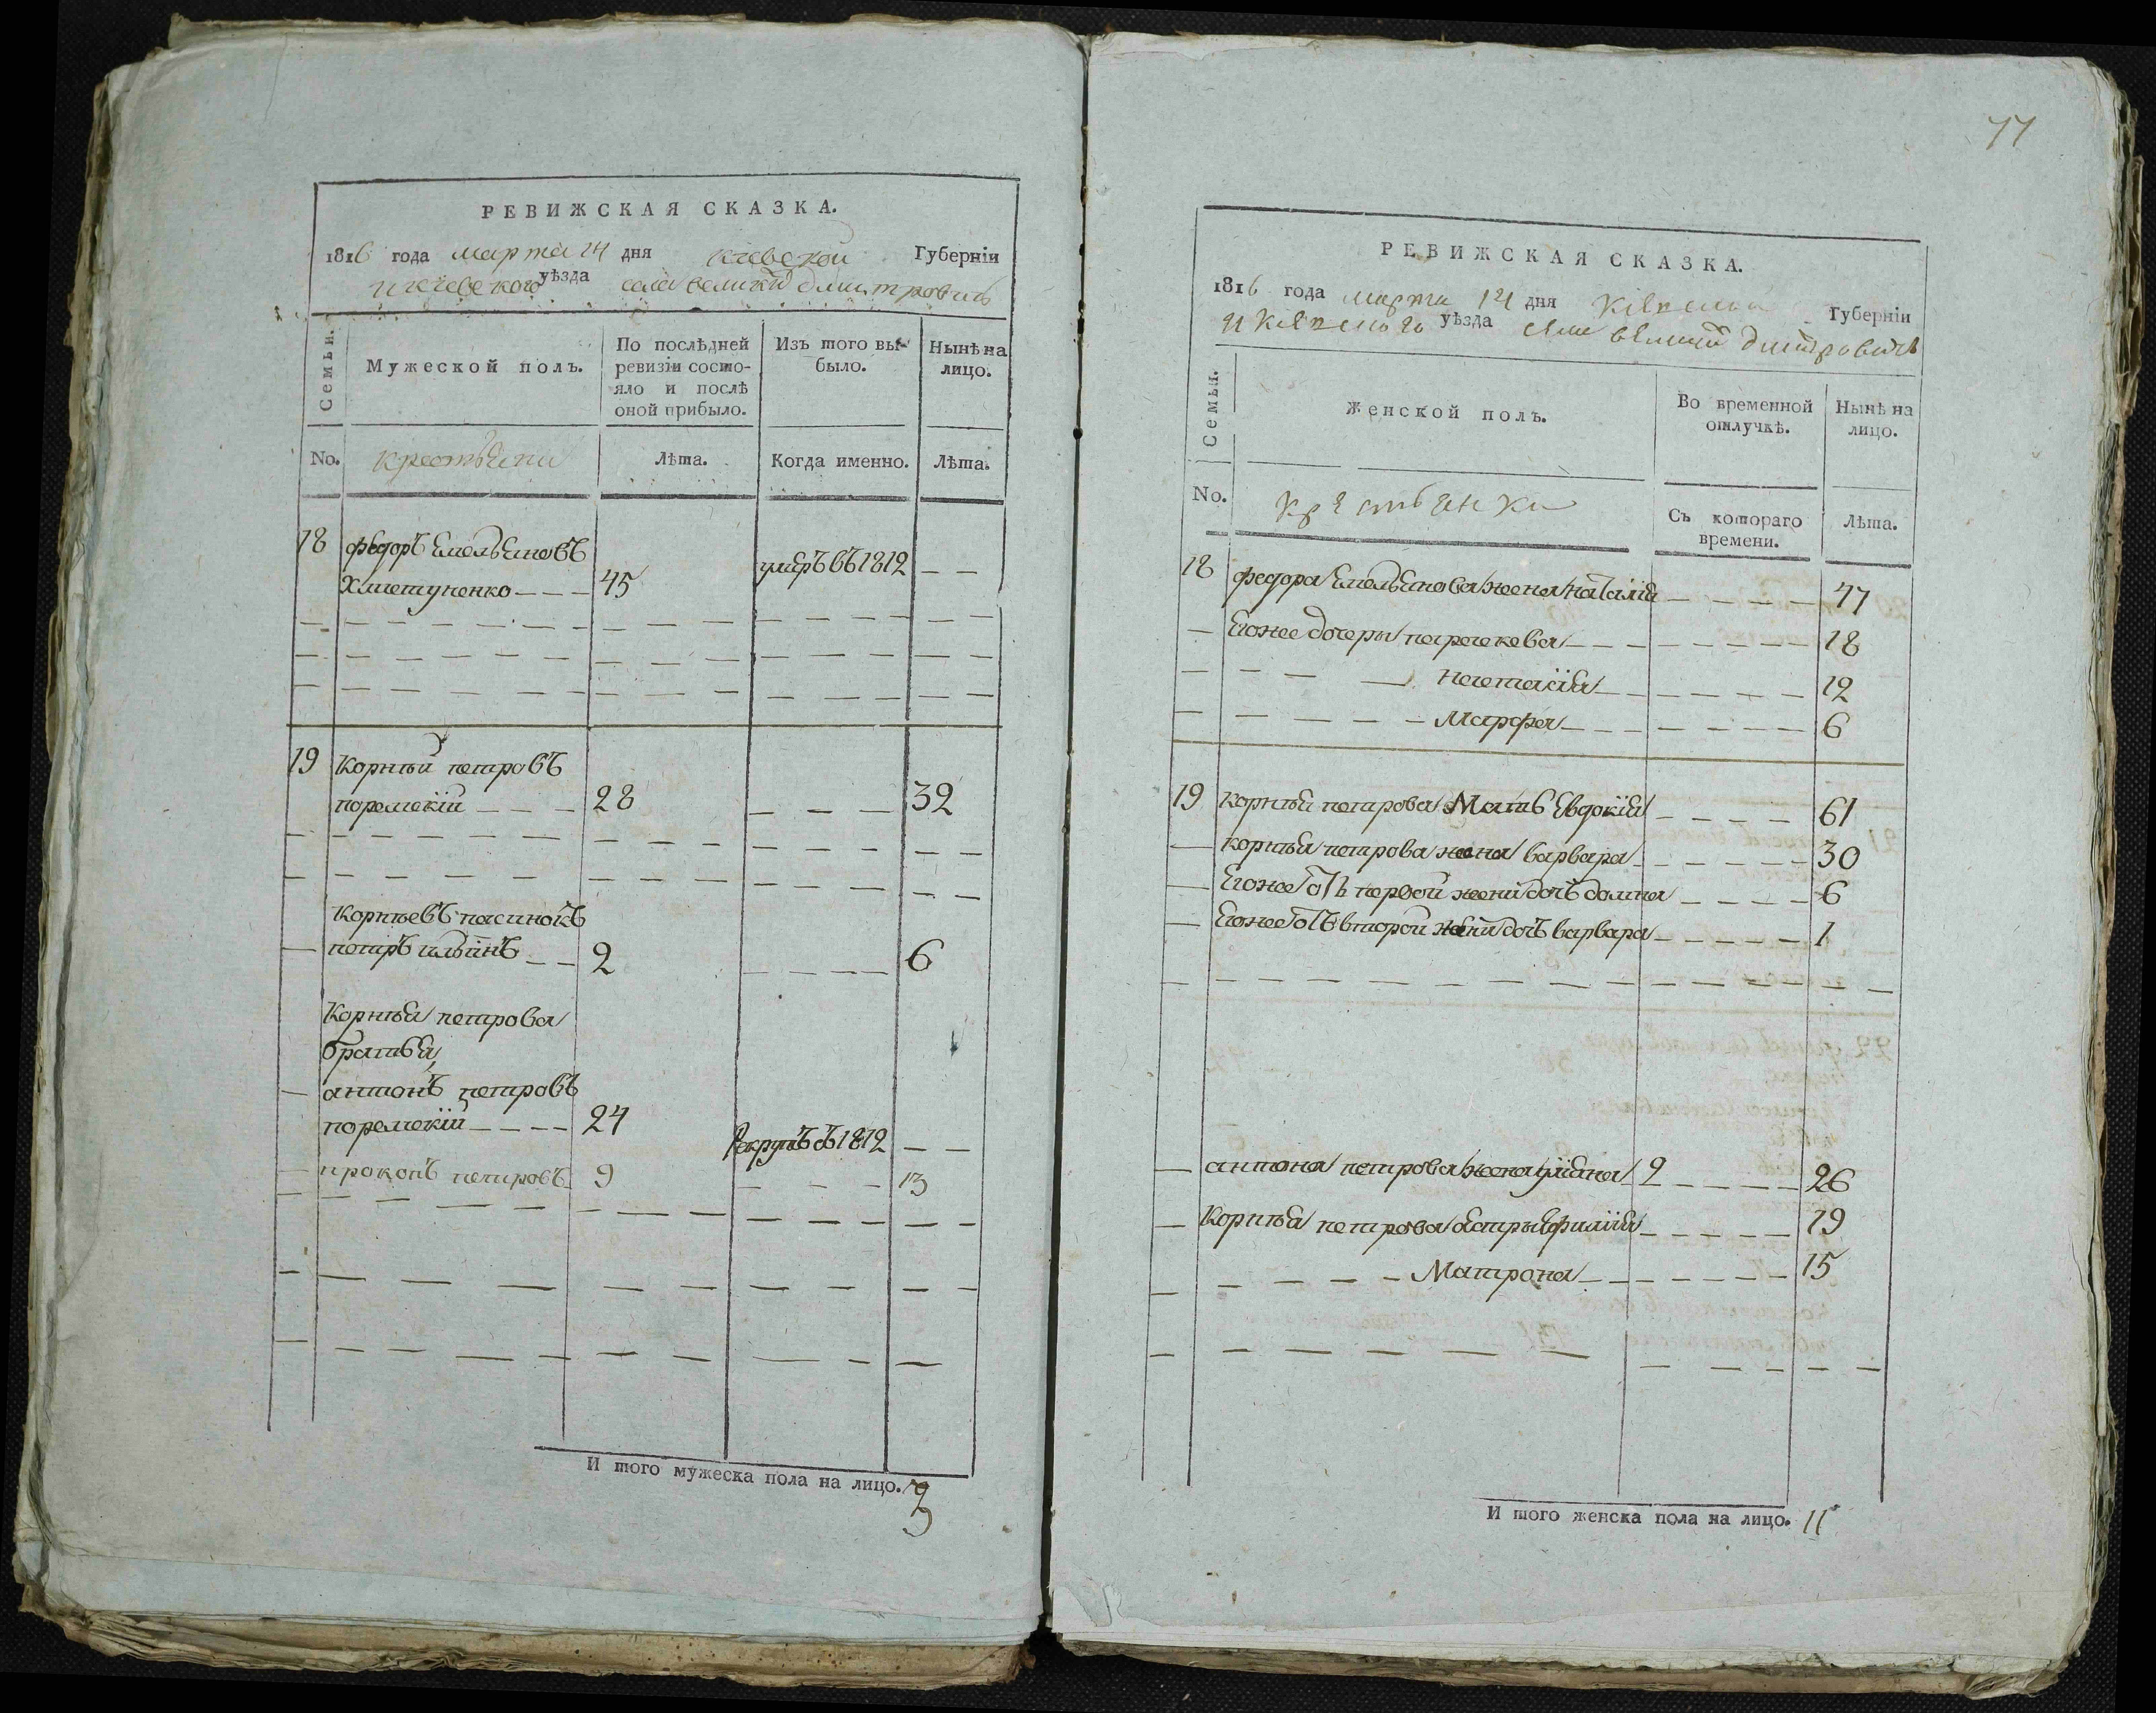 РЕВИЖСКАЯ СКАЗКА.
1816 года марта 14 дня киевской Губерніи
и киевского уѣзда села великих дмитровичь
Семьи. Мужеской полъ. По послѣдней ревизіи состояло и послѣ оной прибыло. Изъ того выбыло. Нынѣ на лицо.
No. крестьяни Лѣта. Когда именно. Лѣта.
18 федоръ Емельяновъ
Хметуненко 45 умеръ въ 1812
19 Корнѣй петровъ
поремскій 28 32
Корнѣевъ пасинокъ
петръ ильинъ 2 6
Корнѣя петрова
братья,
антонъ петровъ
поремскій 24 Рекрутъ въ 1812
прокопъ петровъ 9 13
И того мужеска пола на лицо. 3
77
РЕВИЖСКАЯ СКАЗКА.
1816 года марта 14 дня Губерніи
уѣзда дмитровичь
Семьи. Женской полъ. Во временной отлучкѣ. Нынѣ на лицо.
No. крестьянки Съ котораго времени. Лѣта.
18 федора Емельянова жена наталія 47
Егоже дочеры параскева 18
настасія 12
Марфа 6
19 корнѣя петрова Мать Евдокія 61
корнѣя петрова жена варвара 30
Егоже отъ первой жени дочь домна 6
Егоже отъ второй жени дочь варвара 1
антона петрова жена уліяна 26
Корнѣя петрова сестры 19
Матрона 15
И того женска пола на лицо. 11